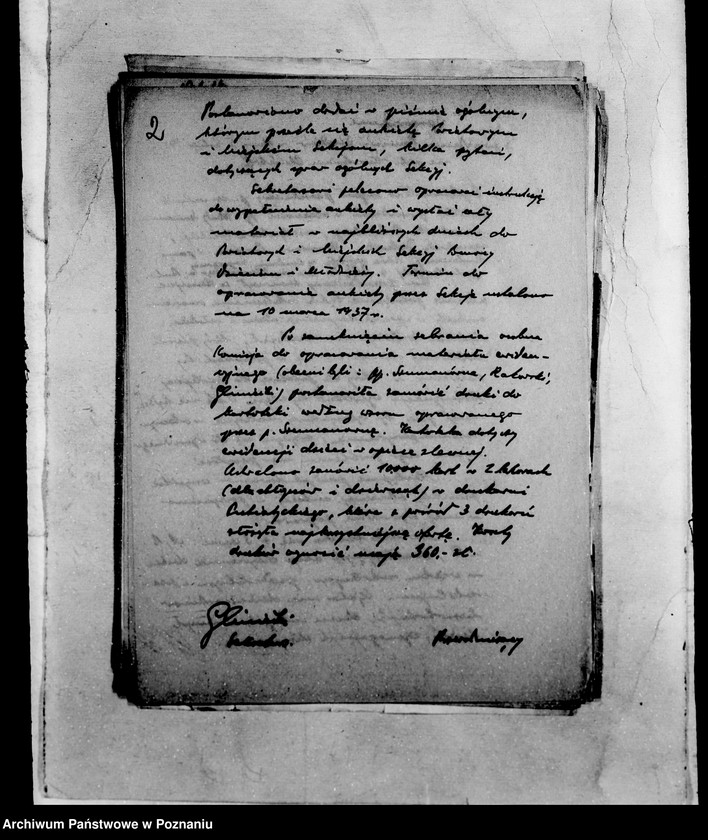 2
Postanowiono dodać w piśmie ogólnym,
którym prześle się ankietę Powiatowym
i Miejskim Sekcjom, kilka pytań,
dotyczących spraw ogólnych Sekcyj.
Sekretarzowi polecono opracować instrukcję
do wypełnienia ankiety i wysłać cały
materiał w najbliższych dniach do
Powiatowych i Miejskich Sekcyj Pomocy
Dzieciom i Młodzieży. Termin do
opracowania ankiety przez Sekcje ustalono
na 10 marca 1937 r.
Po zamknięciu zebrania osobna
Komisja do opracowania materiału ewiden-
cyjnego (obecni byli: pp. Szumanówna, Ratowski,
Gliński) postanowiła zamówić druki do
kartoteki według wzoru opracowanego
przez p. Szumanównę. Kartoteka dotyczy
ewidencji dzieci w opiece zleconej.
Uchwalono zamówić 10000 kart w 2 kolorach
(dla chłopców i dziewcząt) w drukarni
które z pośród 3 drukarń
złożyła najkorzystniejszą ofertę. Koszty
druków wynosić mają 360,- zł.
Gliński
Sekretarz.
Przewodniczący
Archiwum Państwowe w Poznaniu